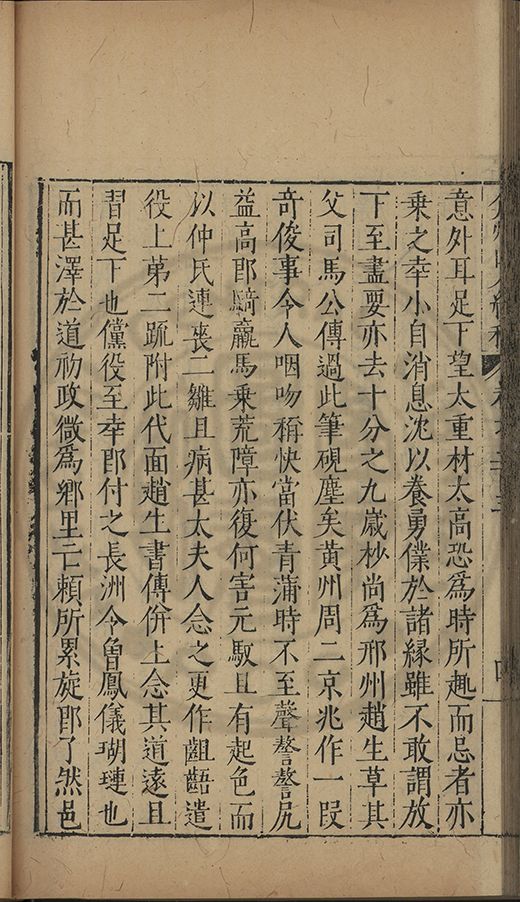 意外耳足下望太重材太高恐為時所趣而忌者亦
乗之幸小自消息沈以養勇僕於諸緣雖不敢謂放
下至盡要亦去十分之九歲杪尚為邢州趙生草其
父司馬公傳過此筆硯塵矣黃州周二京兆作一段
奇俊事令人咽吻稱快當伏青蒲時不至聲謷謷尻
益高郎騎羸馬乘荒障亦復何害元馭且有起色而
以仲氏連喪二雛且病甚太夫人念之更作齟齬遣
役上第二疏附此代面趙生書傳併上念其道遠且
習足下也儻役至幸卽付之長洲令魯鳳儀瑚璉也
而甚澤於道初政微為鄉里亡賴所累旋卽了然邑